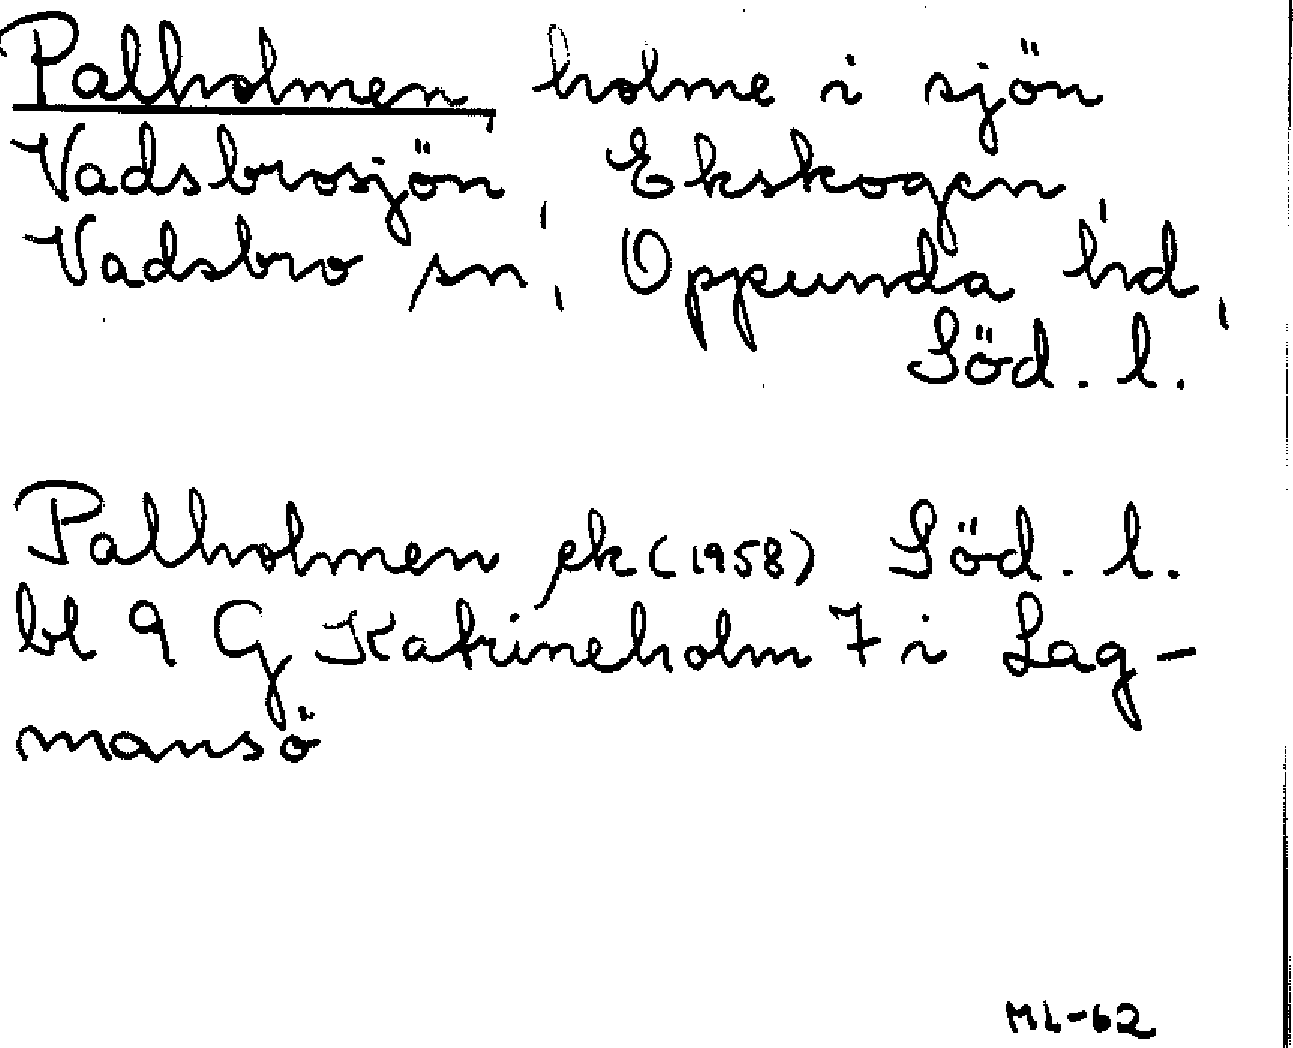 Palholmen, holme i sjön
Vadsbrosjön, Ekskogen,
Vadsbro sn, Oppunda hd,
Söd. l.
Palholmen ek (1958) Söd. l.
bl 9 G Katrineholm 7 i Lag-
mansö
ML-62